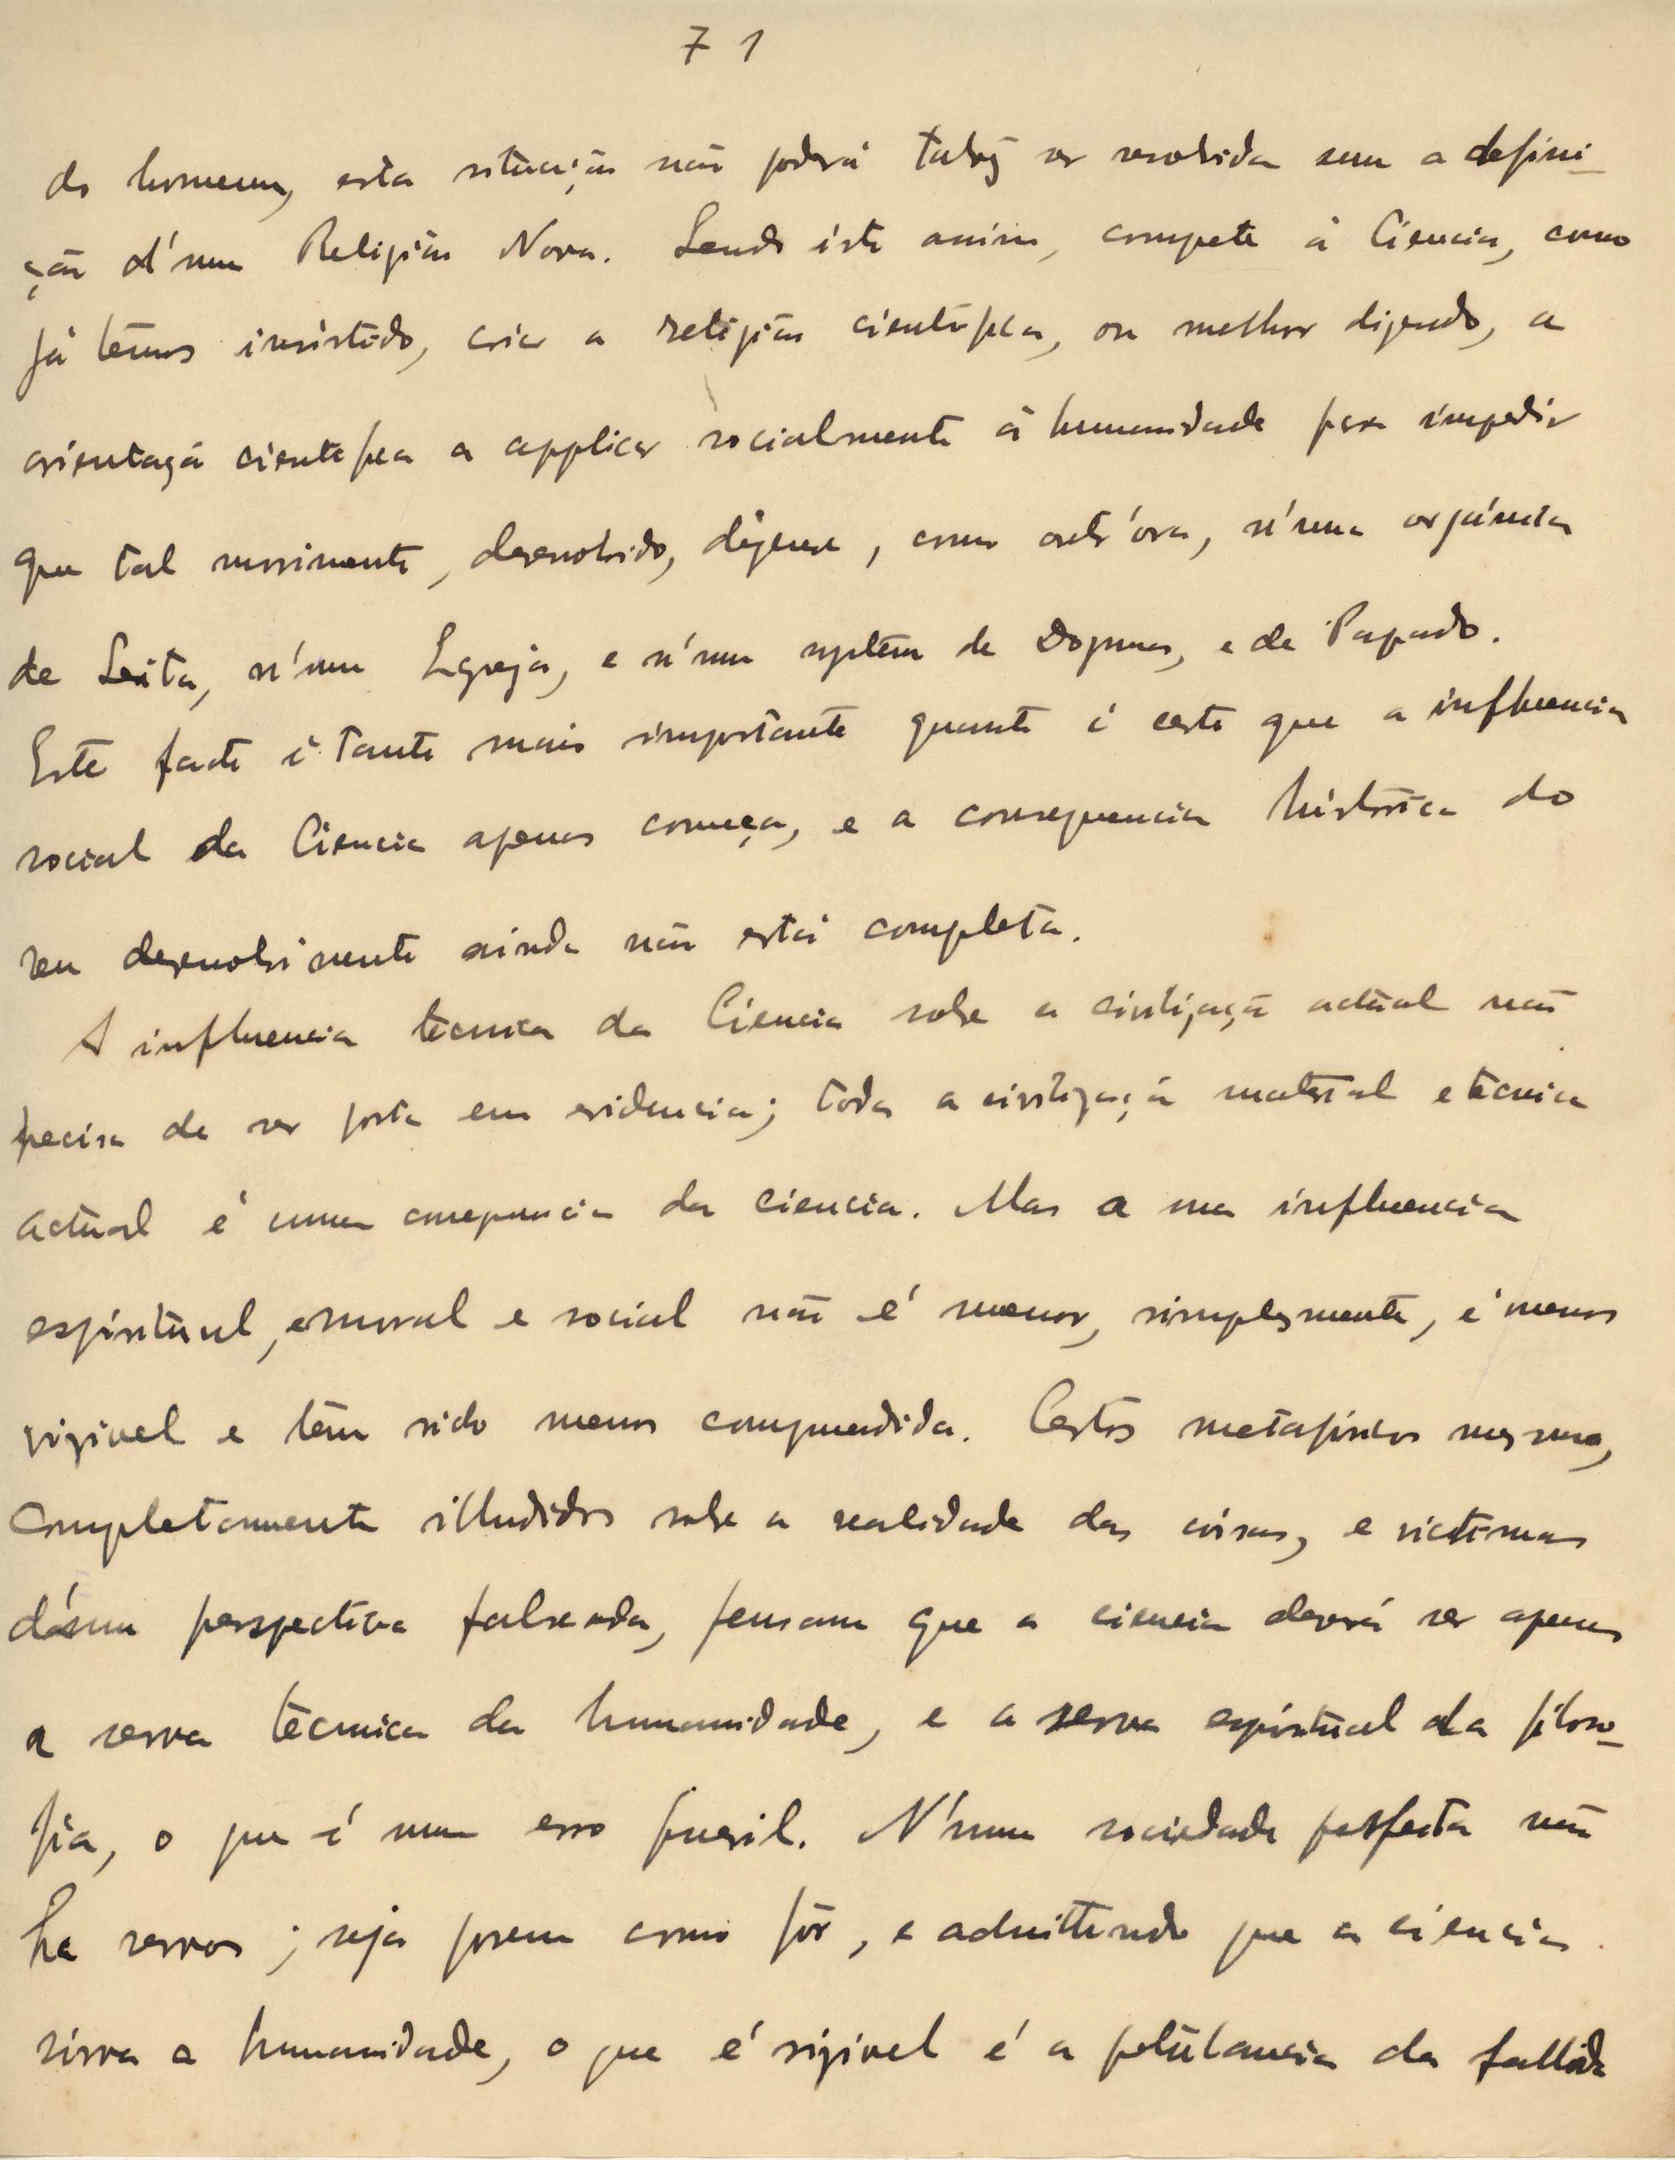 71
do homem, esta situação não poderá talvez ser resolvida sem a defini-
ção d'uma Religião Nova. Sendo isto assim, compete á Ciencia, como
já temos insistido, criar a religião cientifica, ou melhor dizendo, a
orientaçã cientifica a applicar socialmente á humanidade para impedir
que tal movimento, desenvolvido, degenere, como outr'ora, n'uma
de Seita, n'uma Egreja, e n'um systema de Dogmas, e de Papado.
Este facto é tanto mais importante quanto é certo que a influencia
social da Ciencia apenas começa, e a consequencia histórica do
seu desenvolvimento ainda não está completa.
A influencia técnica da Ciencia sobre a civilizaçã actual não
precisa de ser posta em evidencia; toda a civilizaçã material e técnica
actual é uma consequencia da ciencia. Mas a sua influencia
espiritual, e moral e social não é menor, simplesmente, é menos
vizivel e têm sido menos comprehendida. Certos metafisicos mesmo,
completamente illudidos sobre a realidade das coisas, e victimas
d'uma perspectiva falseada, pensam que a ciencia deverá ser apenas
a serva técnica da humanidade, e a serva espiritual da filoso-
fia, o que é um erro pueril. N'uma sociedade perfeita não
ha servos; seja porem como fôr, e admittindo que a ciencia
sirva a humanidade, o que é rizivel é a petulancia da fallida